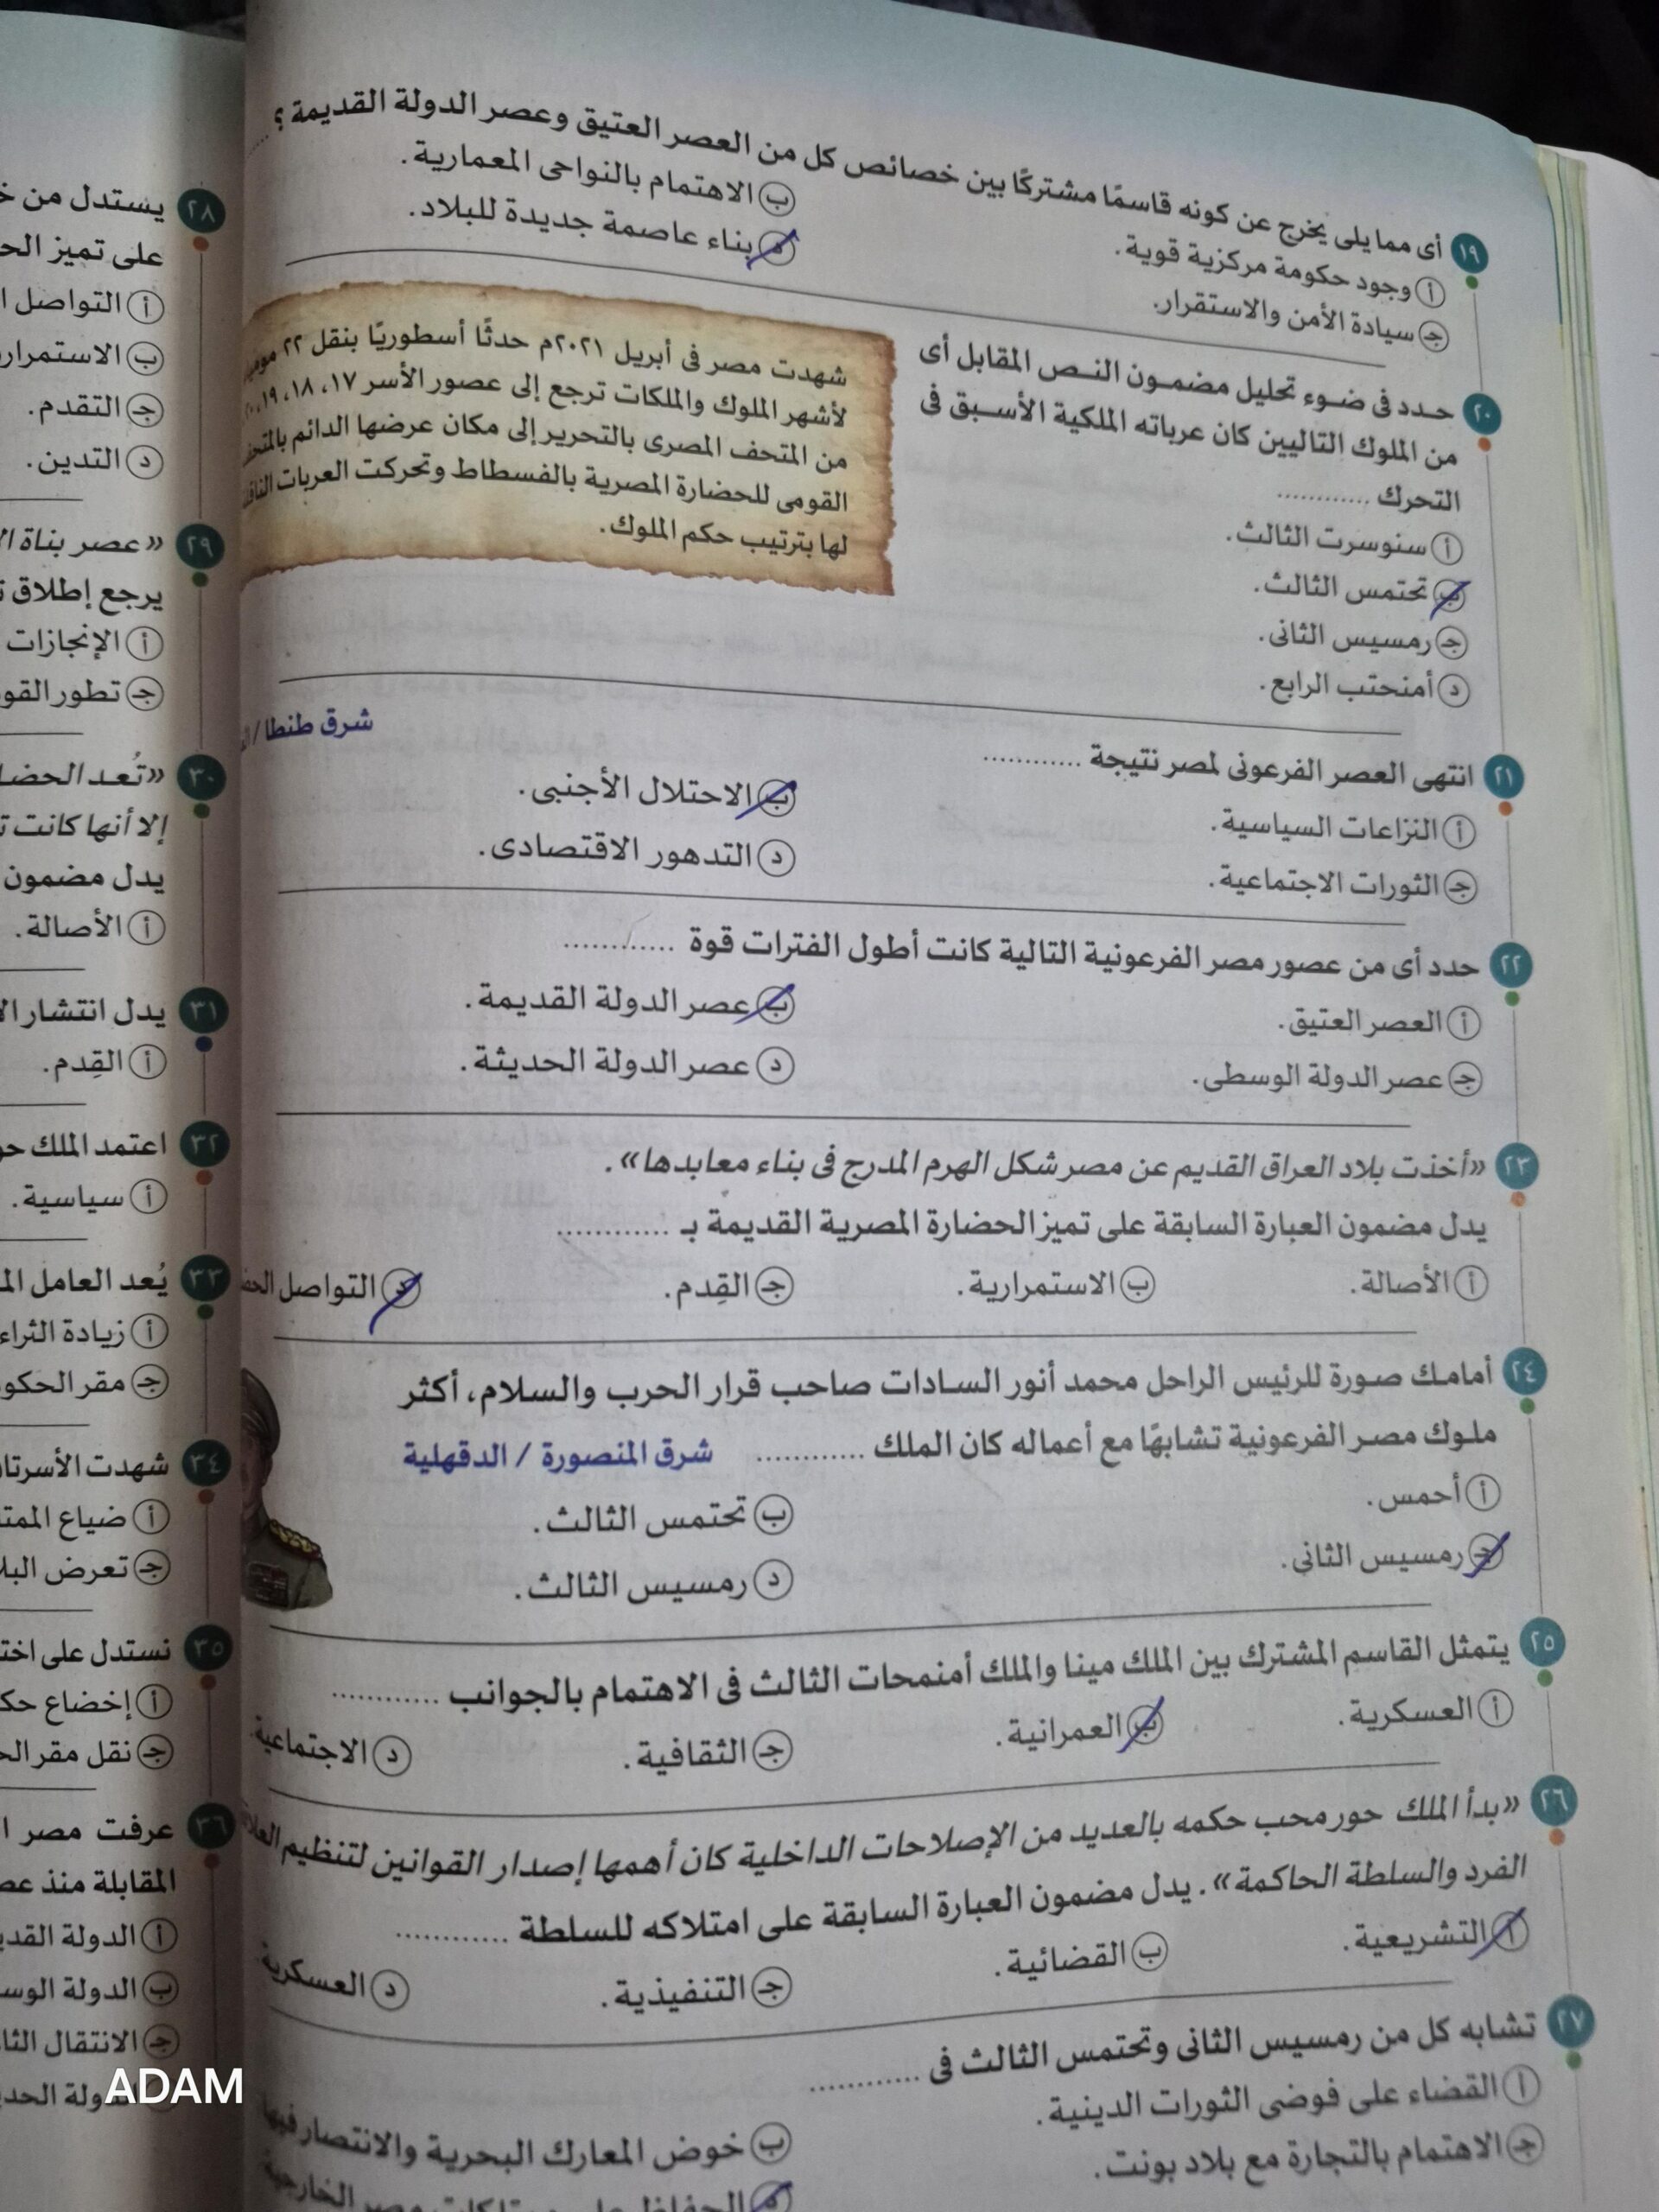 ١٩ أى مما يلى يخرج عن كونه قاسمًا مشتركًا بين خصائص كل من العصر العتيق وعصر الدولة القديمة ؟ ......
أ وجود حكومة مركزية قوية.
ب الاهتمام بالنواحى المعمارية.
جـ سيادة الأمن والاستقرار.
د بناء عاصمة جديدة للبلاد.
٢٠ حدد فى ضوء تحليل مضمون النص المقابل أى
من الملوك التاليين كان عرباته الملكية الأسبق فى
التحرك ............
أ سنوسرت الثالث.
ب تحتمس الثالث.
جـ رمسيس الثانى.
د أمنحتب الرابع.
شهدت مصر فى أبريل ٢٠٢١م حدثًا أسطوريًا بنقل ٢٢
لأشهر الملوك والملكات ترجع إلى عصور الأسر ١٧، ١٨، ١٩،
من المتحف المصرى بالتحرير إلى مكان عرضها الدائم
القومى للحضارة المصرية بالفسطاط وتحركت العربات
لها بترتيب حكم الملوك.
شرق طنطا /
٢١ انتهى العصر الفرعونى لمصر نتيجة ............
أ النزاعات السياسية.
ب الاحتلال الأجنبى.
جـ الثورات الاجتماعية.
د التدهور الاقتصادى.
٢٢ حدد أى من عصور مصر الفرعونية التالية كانت أطول الفترات قوة ............
أ العصر العتيق.
ب عصر الدولة القديمة.
جـ عصر الدولة الوسطى.
د عصر الدولة الحديثة.
٢٣ «أخذت بلاد العراق القديم عن مصر شكل الهرم المدرج فى بناء معابدها».
يدل مضمون العبارة السابقة على تميز الحضارة المصرية القديمة بـ ............
أ الأصالة.
ب الاستمرارية.
جـ القِدم.
د التواصل
٢٤ أمامك صورة للرئيس الراحل محمد أنور السادات صاحب قرار الحرب والسلام، أكثر
ملوك مصر الفرعونية تشابهًا مع أعماله كان الملك ............ شرق المنصورة / الدقهلية
أ أحمس.
ب تحتمس الثالث.
جـ رمسيس الثانى.
د رمسيس الثالث.
٢٥ يتمثل القاسم المشترك بين الملك مينا والملك أمنمحات الثالث فى الاهتمام بالجوانب ............
أ العسكرية.
ب العمرانية.
جـ الثقافية.
د الاجتماعية.
٢٦ «بدأ الملك حور محب حكمه بالعديد من الإصلاحات الداخلية كان أهمها إصدار القوانين لتنظيم
الفرد والسلطة الحاكمة». يدل مضمون العبارة السابقة على امتلاكه للسلطة ............
أ التشريعية.
ب القضائية.
جـ التنفيذية.
د العسكرية
٢٧ تشابه كل من رمسيس الثانى وتحتمس الثالث فى ............
أ القضاء على فوضى الثورات الدينية.
ب خوض المعارك البحرية والانتصار فيها
جـ الاهتمام بالتجارة مع بلاد بونت.
٢٨ يستدل من
على تميز
أ التواصل
ب
جـ التقدم.
د التدين.
٢٩ «عصر بناة
يرجع إطلاق
أ الإنجازات
جـ تطور
٣٠ «تُعد
إلا أنها كانت
يدل مضمون
أ الأصالة.
٣١ يدل انتشار
أ القِدم.
٣٢ اعتمد الملك
أ سياسية.
٣٣ يُعد العامل
أ زيادة الثراء
جـ مقر
٣٤ شهدت
أ ضياع
جـ تعرض
٣٥ نستدل على
أ إخضاع
جـ نقل مقر
٣٦ عرفت مصر
المقابلة منذ
أ الدولة
ب الدولة
جـ الانتقال
ADAM